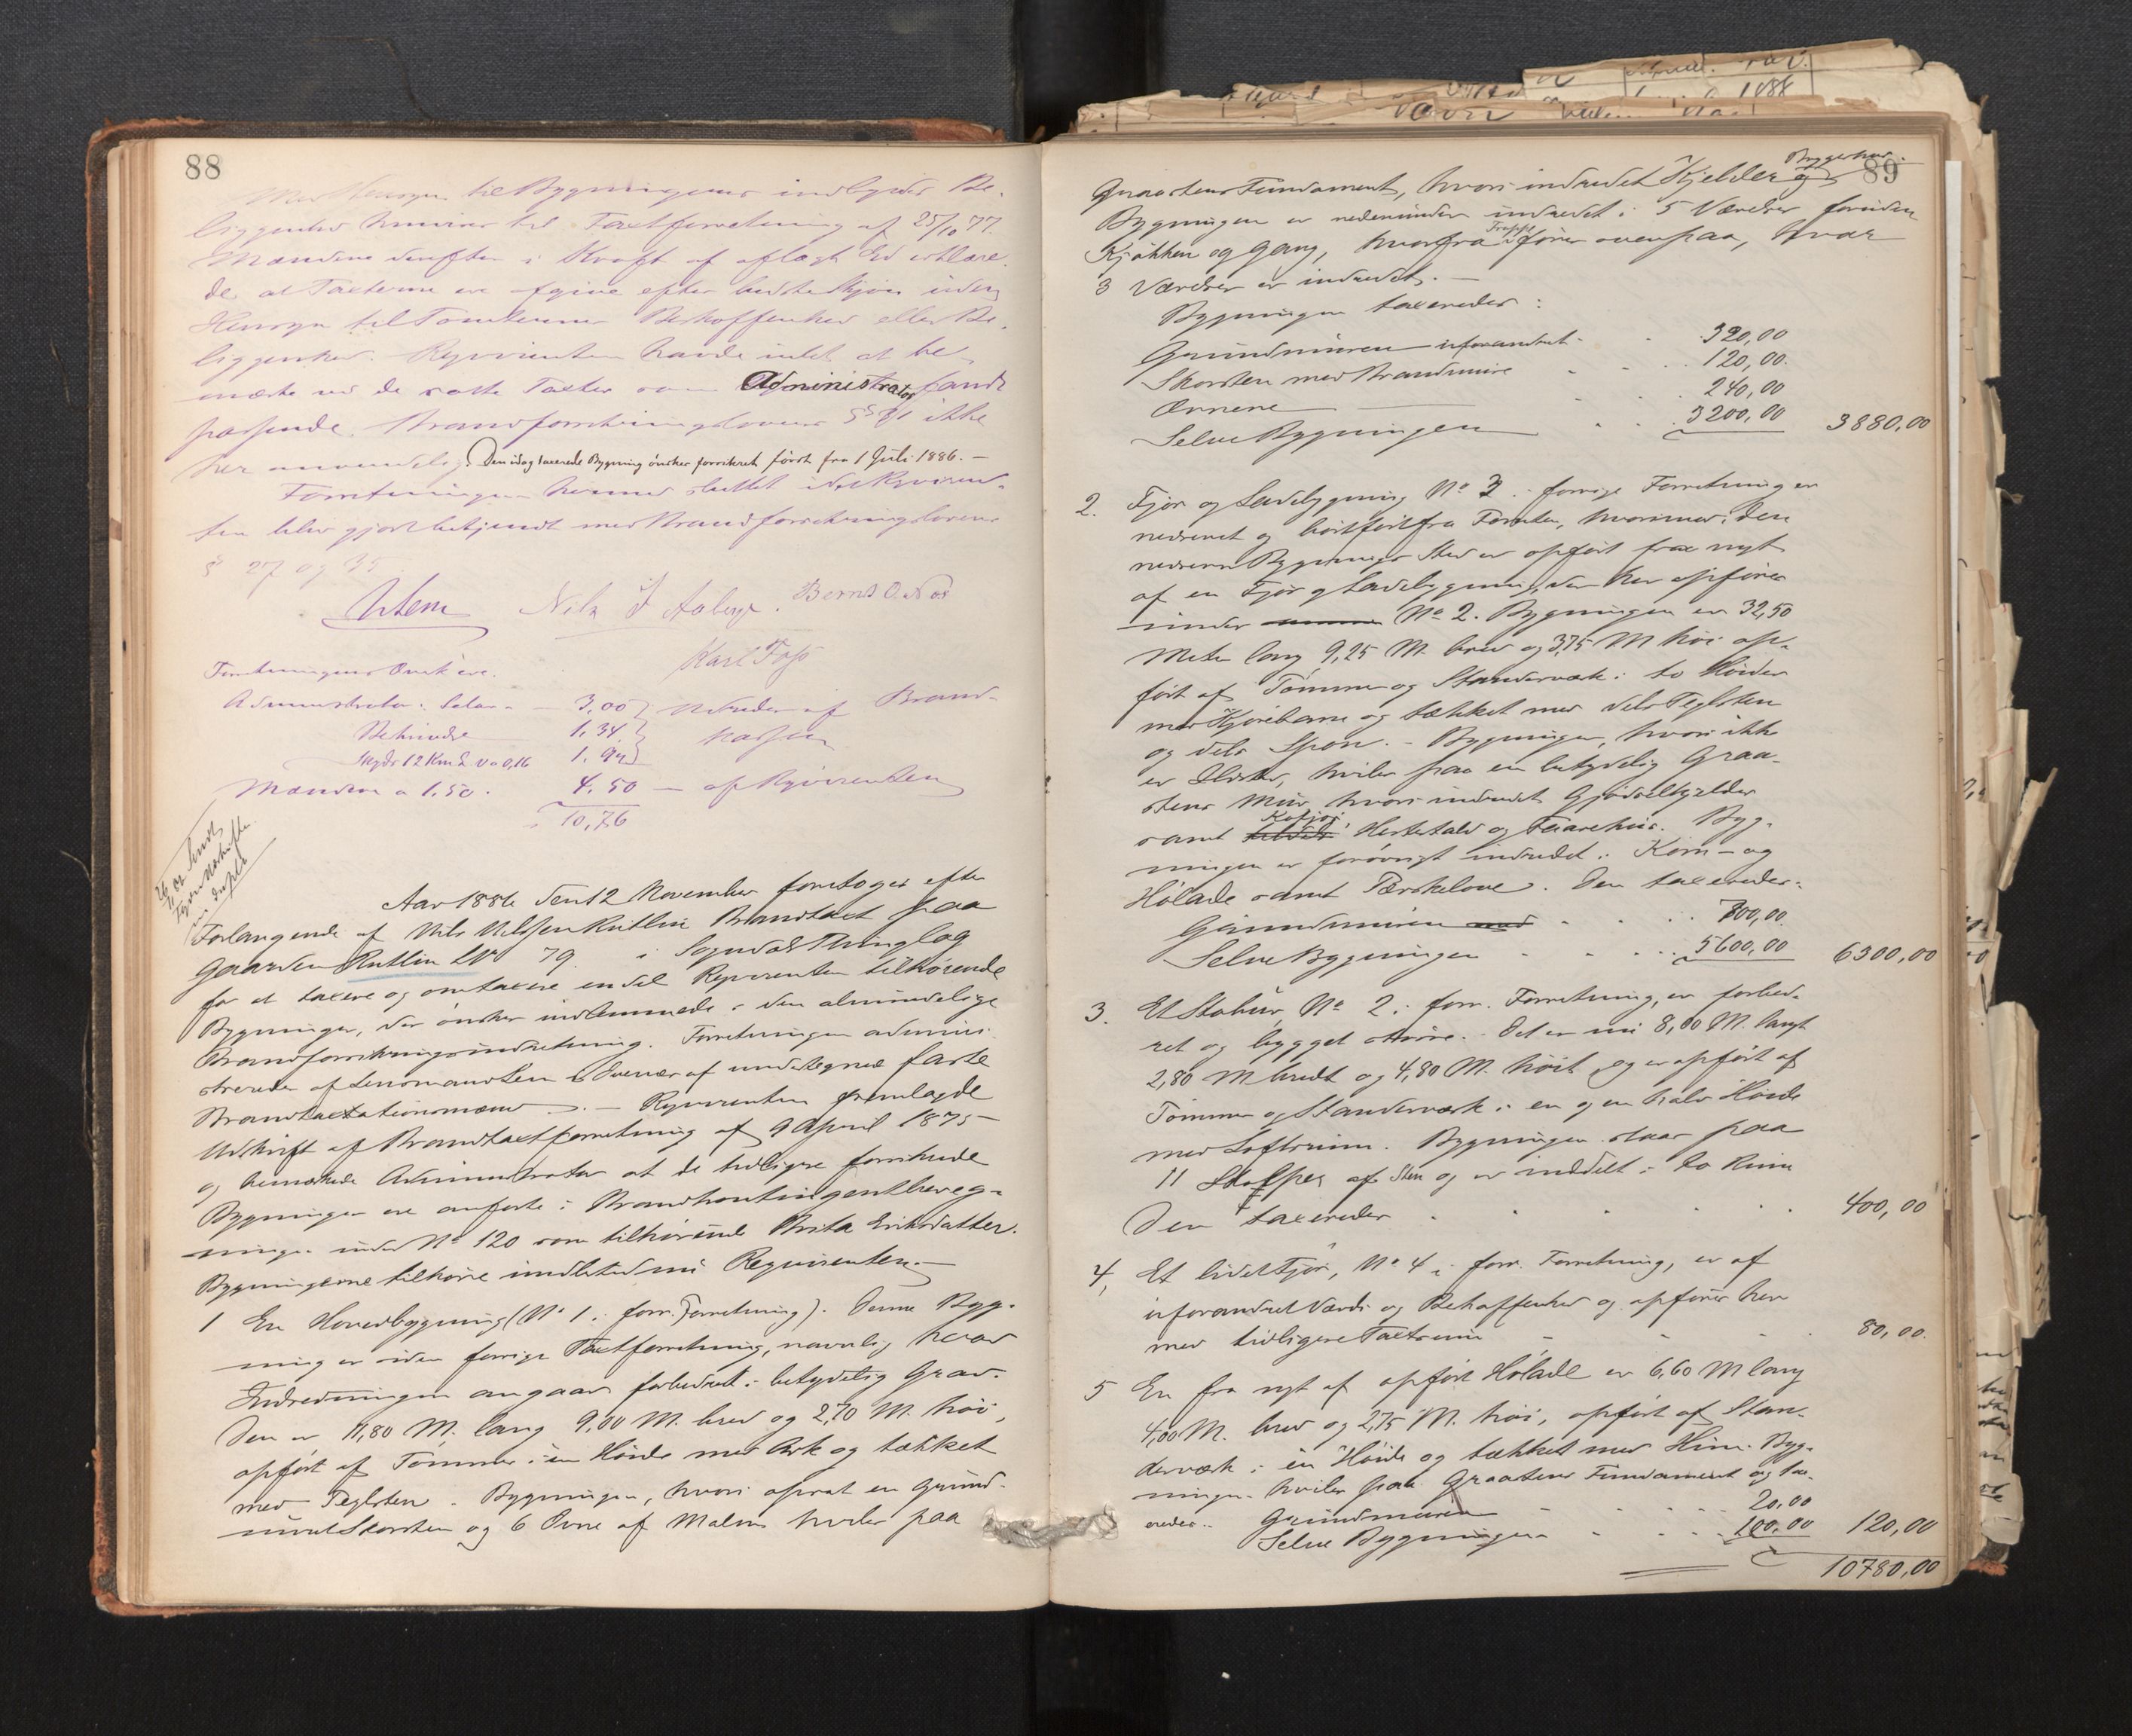 88
Med Hensyn til Bygningens indbyrdes Be-
liggenhed henvises til Taxtforretning af 25/10 77.
Mændene derefter i Kraft af aflagt Ed erklære-
de at Taxterne ere afgivne efter bedste Skjøn uden
Hensyn til Tomternes Beskaffenhed eller Be-
liggenhed. Requirenten havde intet at be-
mærke ved de satte Taxter som Administrator fandt
passende. Brandforsikringslovens § ikke
her anvendelig. Den idag taxerede Bygning ønskes forsikret først fra 1 Juli 1886. –
Forretningen hermed sluttet idet Requiren-
ten blev gjort bekjendt med Brandforsikringslovens
§ 27 og 35
Nils J Aaberge. Bernt O.
Karl Foss
Forretningens Omk. ere.
Administrator: Salar – 3,00 Udredes af Brand-
1,34 kassen
Skyds 12 Km à 0,16 1,92
Mændene a 1,50. 4,50 – af Rqvirenten
10,76
Aar 1886 den 12 November foretoges efter
Forlangende af Nils Nilssen Rutlin Brandtaxt paa
Gaarden Rutlin LN 79 i Sogndals Thinglag
for at taxere og omtaxere endel Reqvirenten tilhørende
Bygninger, der ønskes indlemmede i den almindelige
Brandforsikringsindretning. Forretningen admini-
streredes af Lensmanden i Overvær af undertegnede faste
Brandtaxtationsmænd. – Reqvirenten fremlagde
Udskrift af Brandtaxtforretning af 9 April 1875
og bemærkede Administrator at de tidligere forsikrede
Bygninger ere anførte i Brandkontingentbereg-
ningen under No 120 som tilhørende Brita Eriksdatter.
Bygningerne tilhøre imidlertid nu Reqvirenten. –
1 En Hovedbygning (No 1 i forr. Forretning). Denne Byg-
ning er siden forrige Taxtforretning, navnlig hvad
Indredningen angaar forbedret i betydelig Grad.
Den er 11,80 M. lang 9,00 M. bred og 2,70 M. høi,
opført af Tømmer i en Høide med Ark og tækket
med Teglsten. Bygningen, hvori opsat en grund-
muret Skorsten og 6 Ovne af Malm hviler paa
89
Graastens Fundament, hvori indredet Kjelder og Bryggerhus.
Bygningen er nedenunder indredet i 5 Værelser foruden
Kjøkken og Gang, hvorfra Trappe fører ovenpaa, hvor
3 Værelser er indredet. –
Bygningen taxeredes:
Grundmuren uforandret 320,00
Skorsten med Brandmure 120,00.
Ovnene 240,00
Selve Bygningen 3200,00 3880,00
2. Fjøs og Ladebygning No 3 i forrige Forretning er
nedrevet og bortført fra Tomten, hvorimod i den
nedrevne Bygnings Sted er opført fra nyt
af en Fjøs og Ladebygning, der her opføres
under No 2. Bygningen er 32,50
Meter lang 9,25 M. bred og 3,75 M høi op-
ført af Tømmer og Standerværk i to Høider
med Kjørebane og tækket med dels Teglsten
og dels Spon. – Bygningen, hvori ikke
er Ildsted, hviler paa en betydelig Graa-
stens Mur, hvori indredet Gjødselkjelder
samt Hestestald og Faarehus. Byg-
ningen er forøvrigt indredet i Korn- og
Hølade samt Tærskelove. Den taxeredes:
Grundmuren 700,00.
Selve Bygningen 5600,00 6300,00
3. Et Stabur, No 2 i forr. Forretning, er forbed-
ret og bygget større. Det er nu 8,00 M. langt
2,80 M bredt og 4,80 M. høit, og er opført af
Tømmer og Standerværk i en og en halv Høide
med Loftsrum. Bygningen staar paa
11 Stolper af Sten og er inddelt i to Rum
Den taxeredes 400,00
4, Et lidet Fjøs, No 4 i forr. Forretning, er af
uforandret Værdi og Beskaffenhed og opføres her
med tidligere Taxtsum 80,00.
5 En fra nyt af opført Hølade er 6,60 M lang
4,00 M. bred og 2,75 M. høi, opført af Stan-
derværk i en Høide og tækket med Hun. Byg-
ningen hviler paa Graastens Fundament og tax-
eredes: Grundmuren 20,00
Selve Bygningen 100,00 120,00
10780,00